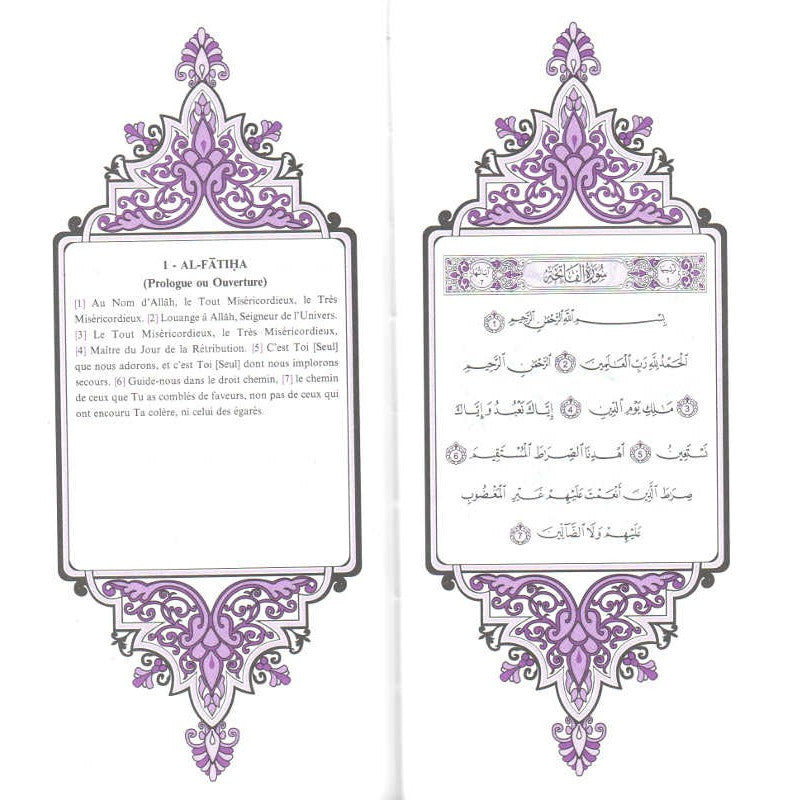 1 - AL-FĀTIḤA
(Prologue ou Ouverture)
[1] Au Nom d'Allâh, le Tout Miséricordieux, le Très
Miséricordieux. [2] Louange à Allâh, Seigneur de l'Univers.
[3] Le Tout Miséricordieux, le Très Miséricordieux,
[4] Maître du Jour de la Rétribution. [5] C'est Toi [Seul]
que nous adorons, et c'est Toi [Seul] dont nous implorons
secours. [6] Guide-nous dans le droit chemin, [7] le chemin
de ceux que Tu as comblés de faveurs, non pas de ceux qui
ont encouru Ta colère, ni celui des égarés.
سُورَةُ الفَاتِحَةِ
بِسْمِ ٱللَّهِ ٱلرَّحْمَٰنِ ٱلرَّحِيمِ ١
ٱلْحَمْدُ لِلَّهِ رَبِّ ٱلْعَٰلَمِينَ ٢ ٱلرَّحْمَٰنِ ٱلرَّحِيمِ
٣ مَٰلِكِ يَوْمِ ٱلدِّينِ ٤ إِيَّاكَ نَعْبُدُ وَإِيَّاكَ
نَسْتَعِينُ ٥ ٱهْدِنَا ٱلصِّرَٰطَ ٱلْمُسْتَقِيمَ ٦
صِرَٰطَ ٱلَّذِينَ أَنْعَمْتَ عَلَيْهِمْ غَيْرِ ٱلْمَغْضُوبِ
عَلَيْهِمْ وَلَا ٱلضَّآلِّينَ ٧